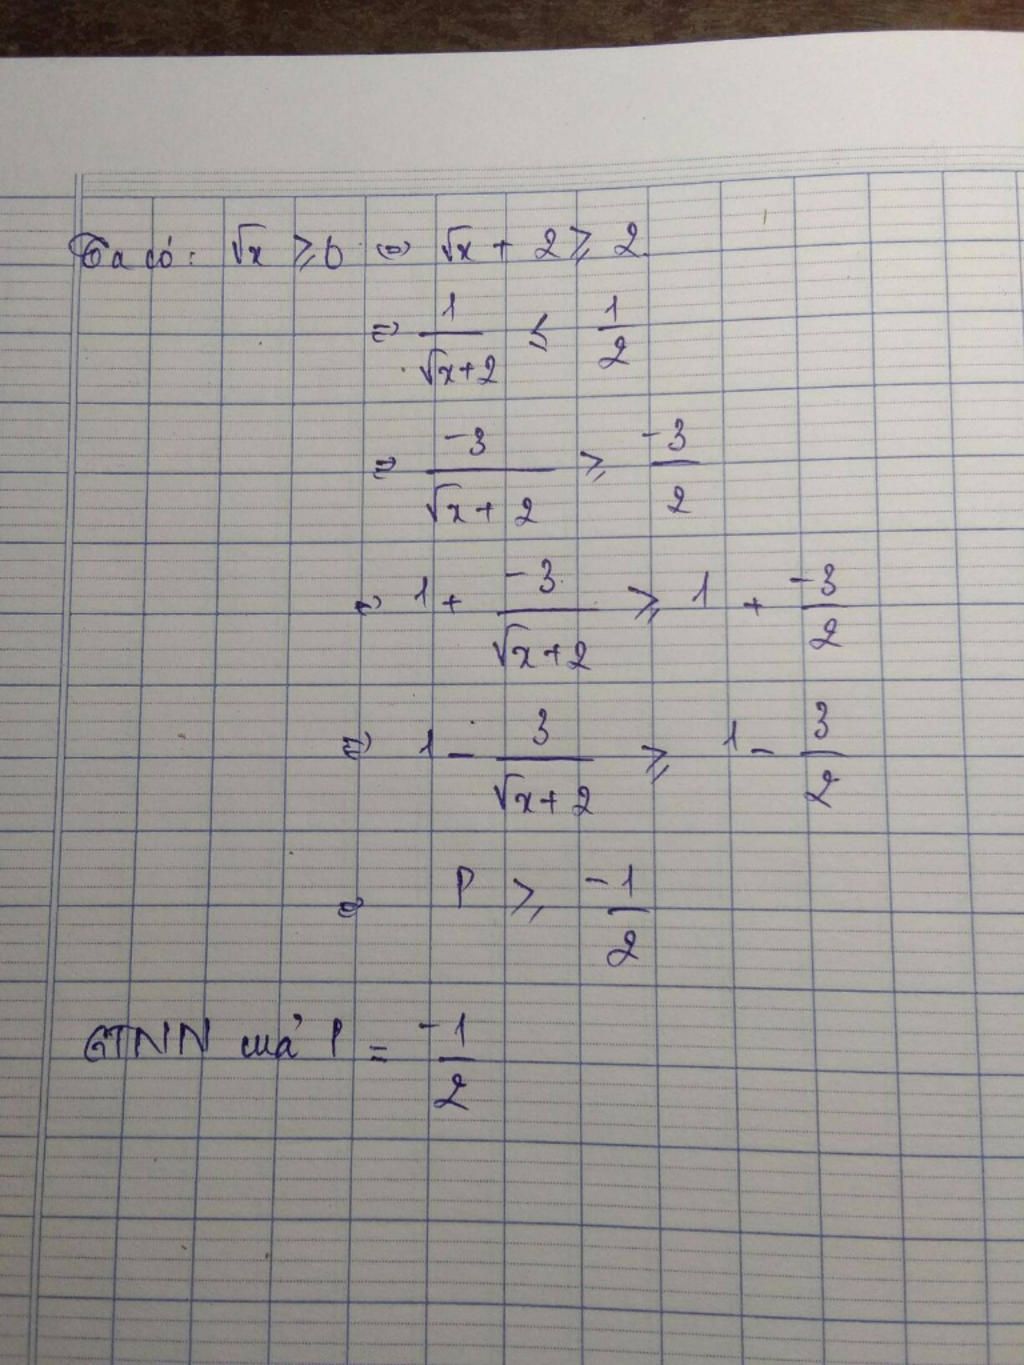 Ta có: √x ≥ 0 ⇔ √x + 2 ≥ 2
⇔ 1/(√x+2) ≤ 1/2
⇔ -3/(√x+2) ≥ -3/2
⇔ 1 + -3/(√x+2) ≥ 1 + -3/2
⇔ 1 - 3/(√x+2) ≥ 1 - 3/2
⇔ P ≥ -1/2
GTNN của P = -1/2